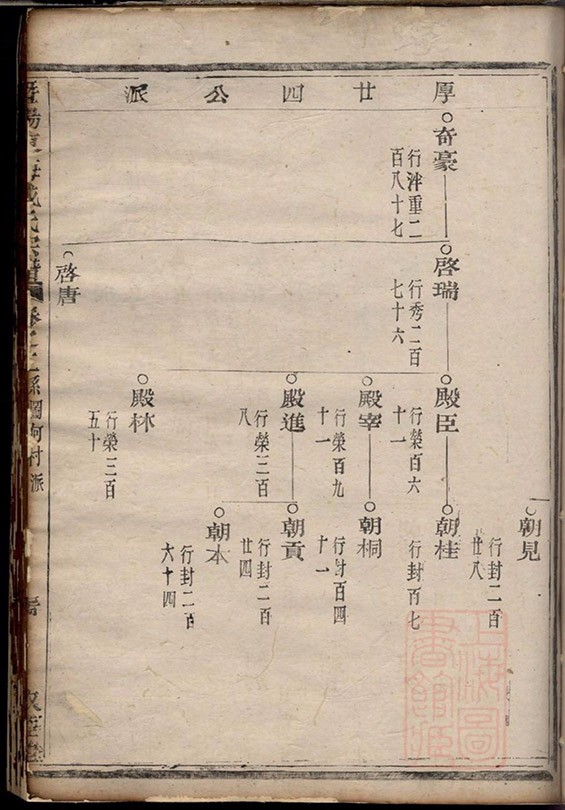 厚廿四公派
奇豪
行泮重二
百八十七
啓瑞
行秀二百
七十六
啓唐
殿臣
行榮百六
十一
殿宰
行榮百九
十一
殿進
行榮三百
八
殿林
行榮三百
五十
朝見
行封二百
廿八
朝桂
行封百七
朝桐
行封百四
十一
朝貢
行封二百
廿四
朝本
行封二百
六十四
上海圖
書館藏